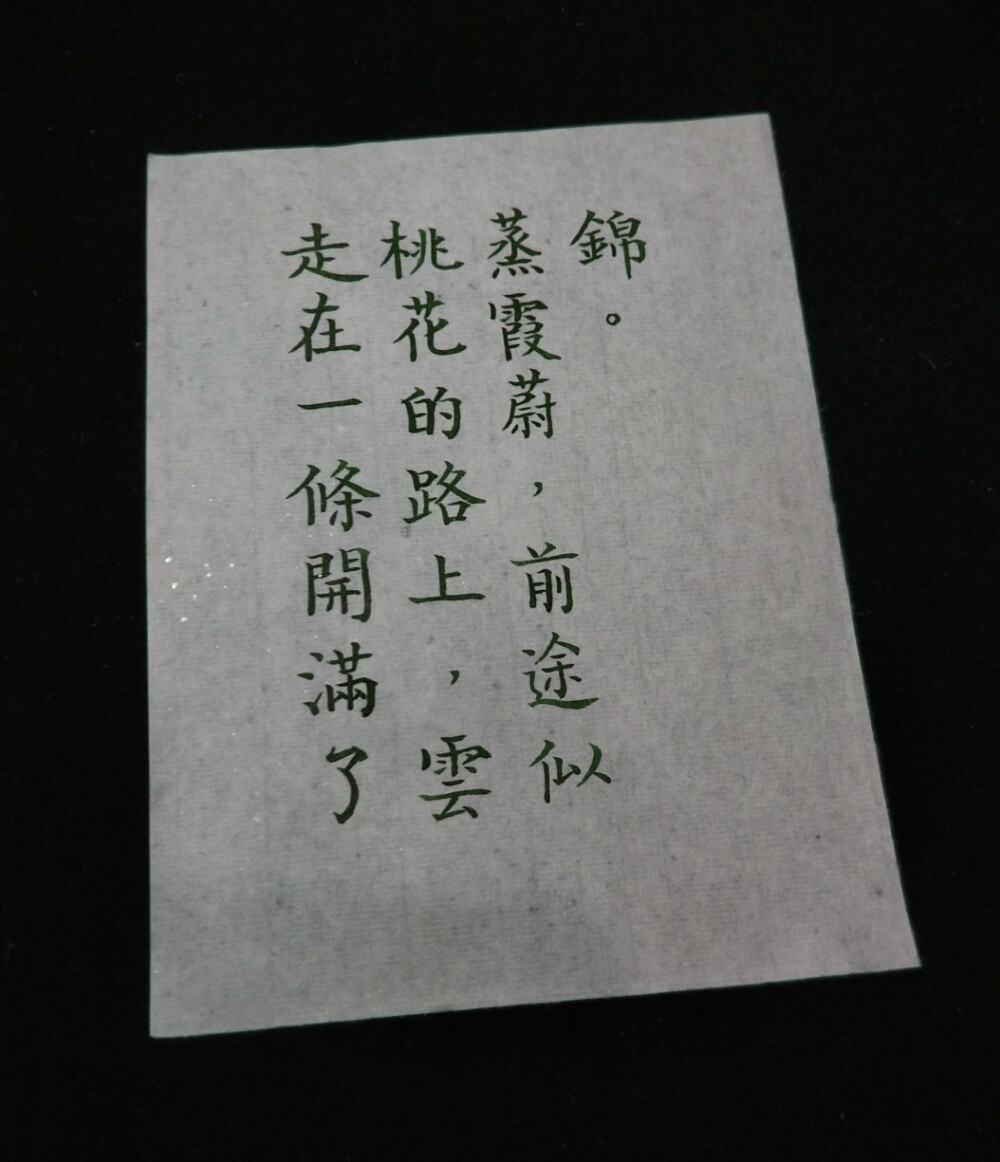 走在一條開滿了
桃花的路上，雲
蒸霞蔚，前途似
錦。